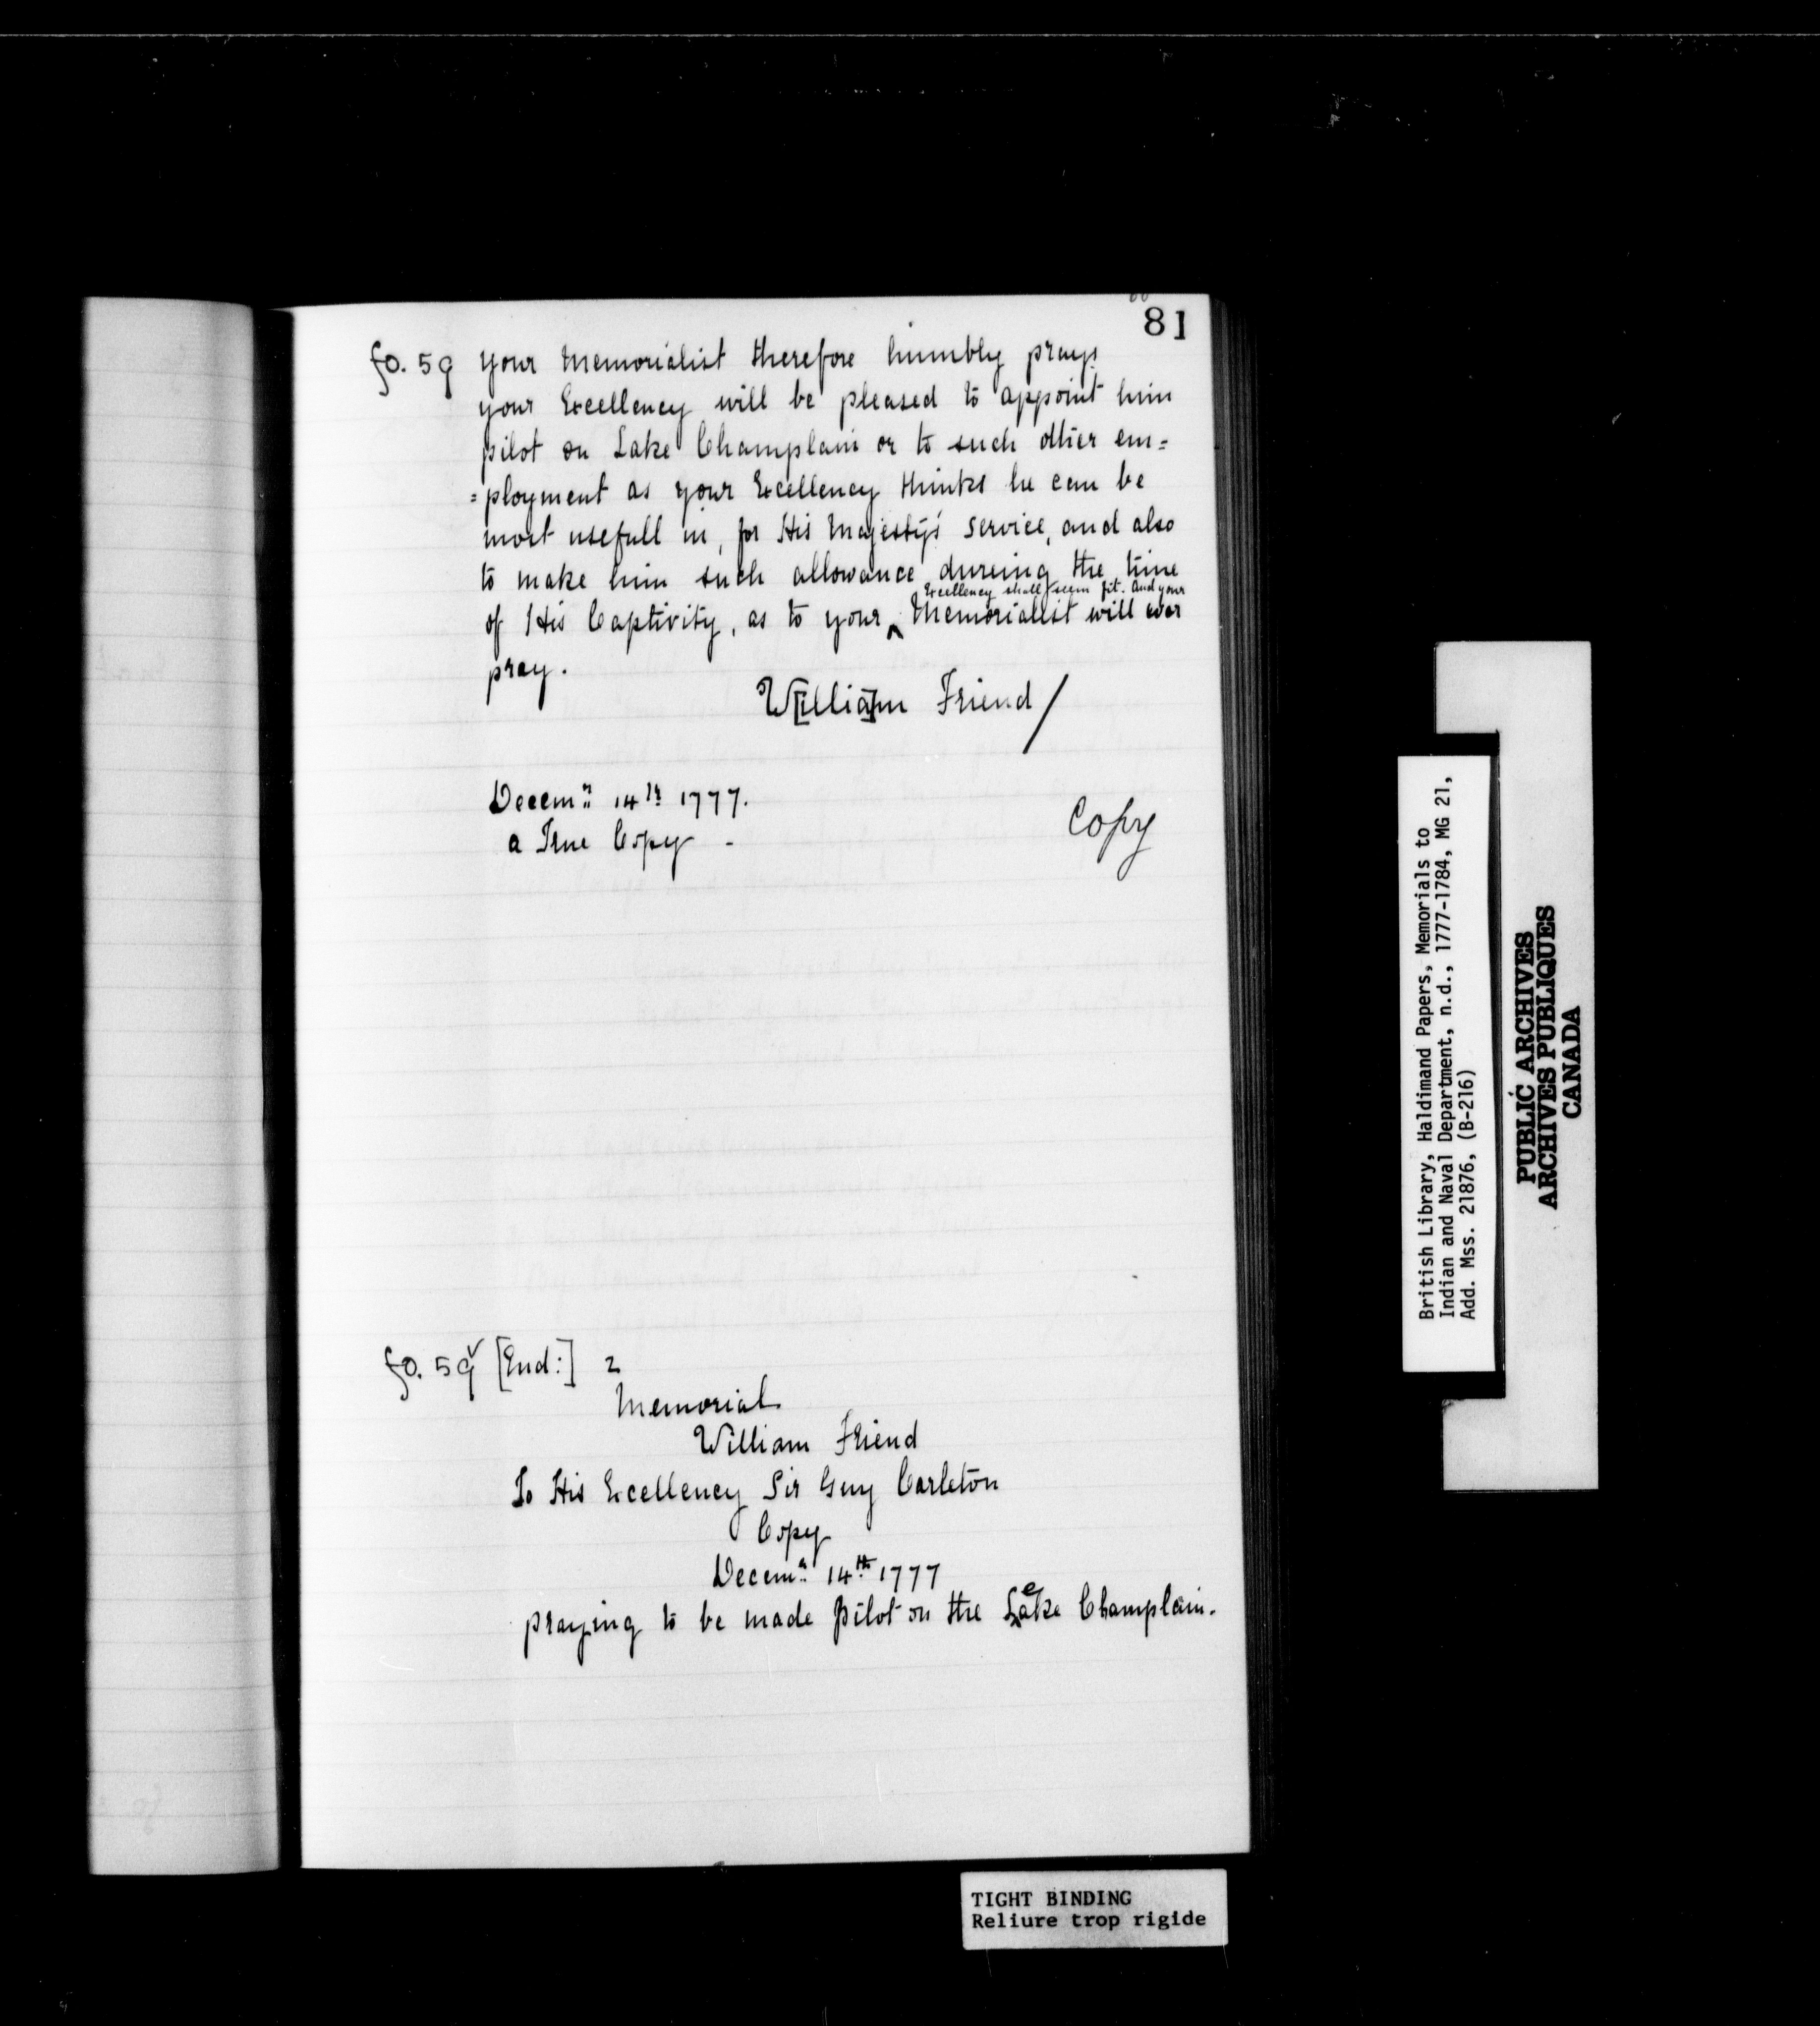 81
fo. 59 your Memorialist therefore humbly prays
your Excellency will be pleased to appoint him
pilot on Lake Champlain or to such other em=
=ployment as your Excellency thinks he can be
most usefull in, for His Majesty's service, and also
to make him such allowance dureing the time
Excellency shall seem fit. And your
of His Captivity, as to your ‸ Memorialist will ever
pray.
W[illia]m Friend/
Decemr 14th 1777.
a True Copy -
Copy
fo. 59v [End:] 2
Memorial
William Friend
To His Excellency Sir Guy Carleton
Copy
Decemr 14th 1777
praying to be made pilot on the Lake Champlain.
British Library, Haldimand Papers, Memorials to
Indian and Naval Department, n.d., 1777-1784, MG 21,
Add. Mss. 21876, (B-216)
PUBLIC ARCHIVES
ARCHIVES PUBLIQUES
CANADA
TIGHT BINDING
Reliure trop rigide